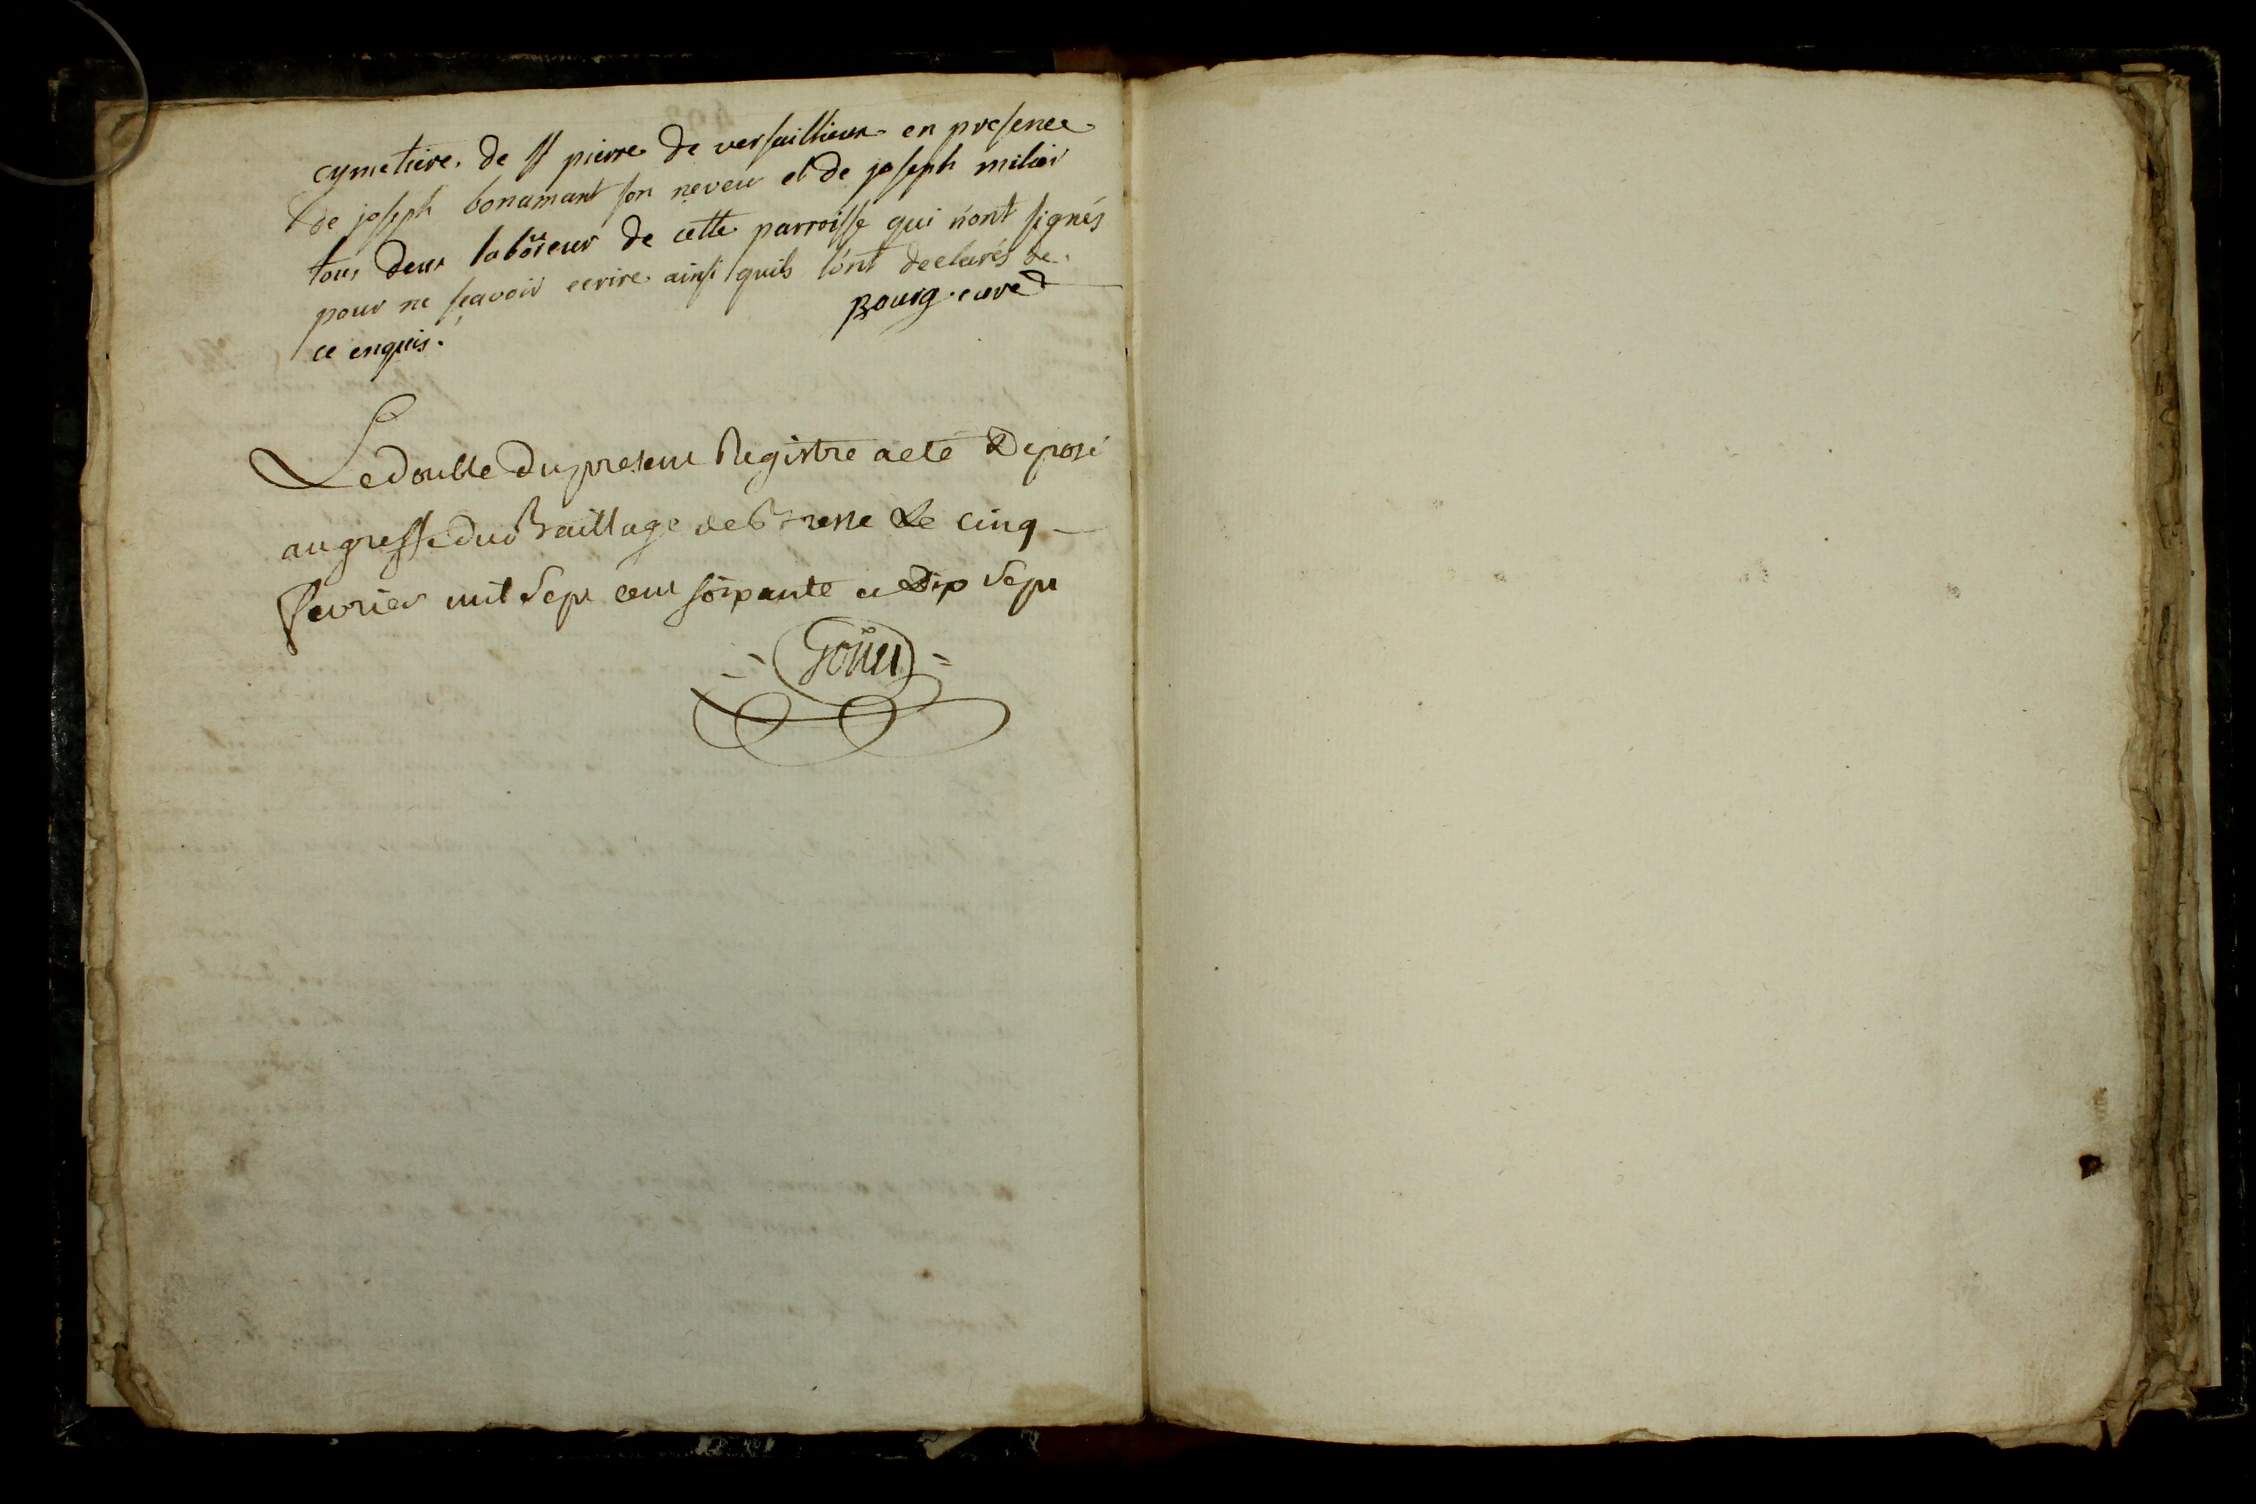 cymetiere de st pierre de versaillieux en presence
de joseph bonamant son neveu et de joseph milior
tous deux laboreur de cette parroisse qui n'ont signés
pour ne scavoir ecrire ainsi quils l'ont declarés de
ce enquis. Bourg curé
Le double du present Registre a eté Deposé
au greffe du Baillage de Bresse Le cinq
fevrier mil sept cent soixante et Dix Sept